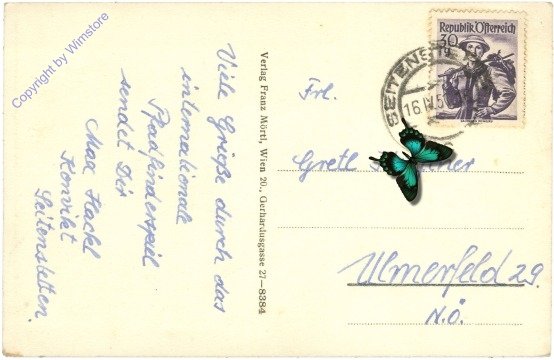 Copyright by Wimstore
Viele Grüße durch das
internationale
Pfadfinderspiel
sendet Dir
Max Hackl
Konvikt
Seitenstetten.
Verlag Franz Mörtl, Wien 20., Gerhardusgasse 27—8384
Republik Österreich
30
SEITENST
16 IV 5
Frl.
Gretl
Ulmerfeld 29.
N.Ö.